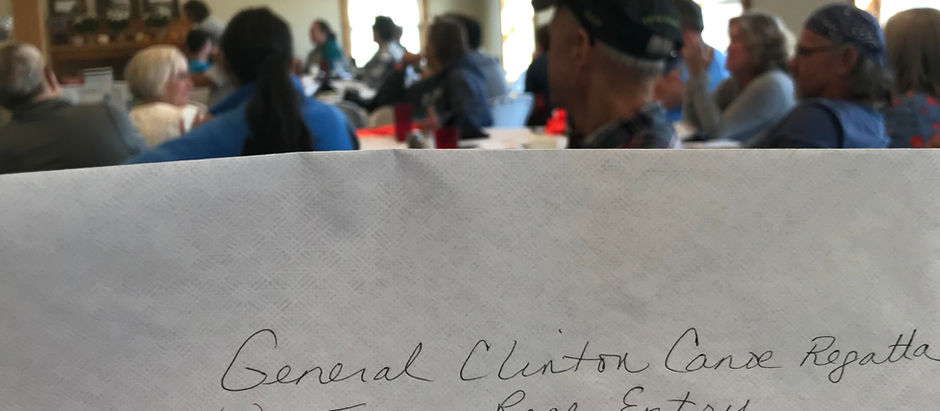 General Clinton Canoe Regatta
Race Entry